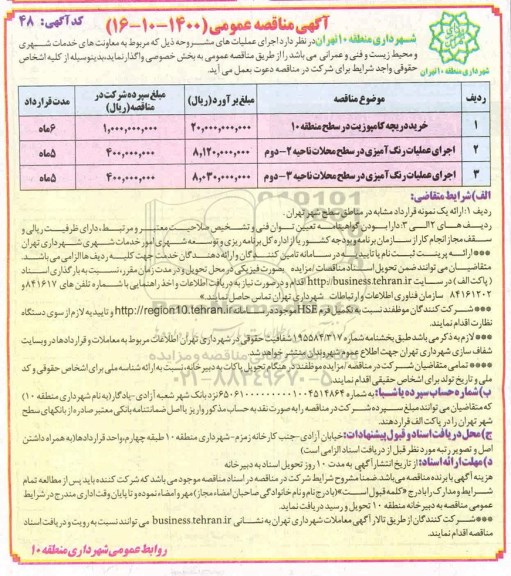 کد آگهی: ۴۸
آگهی مناقصه عمومی (۱۴۰۰-۱۰-۱۶)
شهرداری منطقه ۱۰ تهران
شهرداری منطقه ۱۰ تهران در نظر دارد اجرای عملیات های مشروحه ذیل که مربوط به معاونت های خدمات شهری
و محیط زیست و فنی و عمرانی می باشد را از طریق مناقصه عمومی به بخش خصوصی واگذار نماید، بدینوسیله از کلیه اشخاص
حقوقی واجد شرایط برای شرکت در مناقصه دعوت بعمل می آید.
ردیف موضوع مناقصه مبلغ برآورد (ریال) مبلغ سپرده شرکت در مناقصه (ریال) مدت قرارداد
۱ خرید دریچه کامپوزیت در سطح منطقه ۱۰ ۲۰,۰۰۰,۰۰۰,۰۰۰ ۱,۰۰۰,۰۰۰,۰۰۰ ۶ ماه
۲ اجرای عملیات رنگ آمیزی در سطح محلات ناحیه ۲-دوم ۸,۱۲۰,۰۰۰,۰۰۰ ۴۰۰,۰۰۰,۰۰۰ ۵ ماه
۳ اجرای عملیات رنگ آمیزی در سطح محلات ناحیه ۳-دوم ۸,۰۳۰,۰۰۰,۰۰۰ ۴۰۰,۰۰۰,۰۰۰ ۵ ماه
الف) شرایط متقاضی:
ردیف ۱: ارائه یک نمونه قرارداد مشابه در مناطق سطح شهر تهران.
ردیف های ۲ الی ۳: دارا بودن گواهینامه تعیین توان فنی و تشخیص صلاحیت معتبر و مرتبط، دارای ظرفیت ریالی و
سقف مجاز انجام کار از سازمان برنامه و بودجه کشور یا از اداره کل برنامه ریزی و توسعه شهری امور خدمات شهری شهرداری تهران
***ارائه پرینت ثبت نام یا تاییدیه در سامانه تامین کنندگان و ارائه دهندگان خدمت جهت کلیه ردیف ها الزامی می باشد.
متقاضیان می توانند ضمن تحویل اسناد مناقصات/مزایده بصورت فیزیکی در محل تحویل و در مدت زمان مقرر، نسبت به بارگذاری اسناد
(پاکت الف) در سایت http://business.tehran.ir اقدام و در صورت نیاز به دریافت اطلاعات و اخذ راهنمایی با شماره تلفن های ۸۴۱۶۱۷ و
۸۴۱۶۱۲۰۲ سازمان فناوری اطلاعات و ارتباطات شهرداری تهران تماس حاصل نمایند.»
***شرکت کنندگان موظفند نسبت به تکمیل فرم HSE موجود در سامانه http://region10.tehran.ir و تاییدیه لازم از سوی دستگاه
نظارت اقدام نمایند.
***لازم به ذکر می باشد طبق بخشنامه شماره ۱۹۵۵۸۴/۳۱۷ شفافیت حقوقی در شهرداری تهران اطلاعات مربوط به معاملات و قراردادها در وبسایت
شفاف سازی شهرداری تهران جهت اطلاع عموم شهروندان منتشر خواهد شد.
****تمامی متقاضیان شرکت در مناقصه/مزایده موظفند در هنگام تحویل پاکات به دبیرخانه، نسبت به ارائه شناسه ملی برای اشخاص حقوقی و کد
ملی و تاریخ تولد برای اشخاص حقیقی اقدام نمایند.
ب) شماره حساب سپرده یا شبا: به شماره نزد بانک شهر شعبه آزادی-یادگار (به نام شهرداری منطقه ۱۰)
که متقاضیان می توانند مبلغ سپرده شرکت در مناقصه را به صورت نقد به حساب مذکور واریز یا اصل ضمانتنامه بانکی معتبر صادره از بانکهای سطح
شهر تهران را در پاکت الف قرار دهند.
ج) محل دریافت اسناد و قبول پیشنهادات: خیابان آزادی-جنب کارخانه زمزم-شهرداری منطقه ۱۰ طبقه چهارم، واحد قراردادها (به همراه داشتن
اصل و تصویر رتبه مورد نظر قبل از دریافت اسناد الزامی است)
د) مهلت ارائه اسناد: از تاریخ انتشار آگهی به مدت ۱۰ روز تحویل اسناد به دبیرخانه
هزینه آگهی با برنده مناقصه می باشد. ضمنا مشروح شرایط شرکت در مناقصه در اسناد مناقصه موجود می باشد که شرکت کننده باید پس از مطالعه تمام
شرایط و مدارک را با درج «کلمه قبول است» (با درج نام و نام خانوادگی صاحبان امضاء مجاز) مهر و امضاء نموده و تا پایان وقت اداری مندرج در شرایط
عمومی مناقصه به دبیرخانه منطقه ۱۰ تحویل و رسید دریافت نماید.
***شرکت کنندگان از طریق تالار آگهی معاملات شهرداری تهران به نشانی business.tehran.ir می توانند نسبت به رویت و دریافت اسناد
مناقصه اقدام نمایند.
روابط عمومی شهرداری منطقه ۱۰